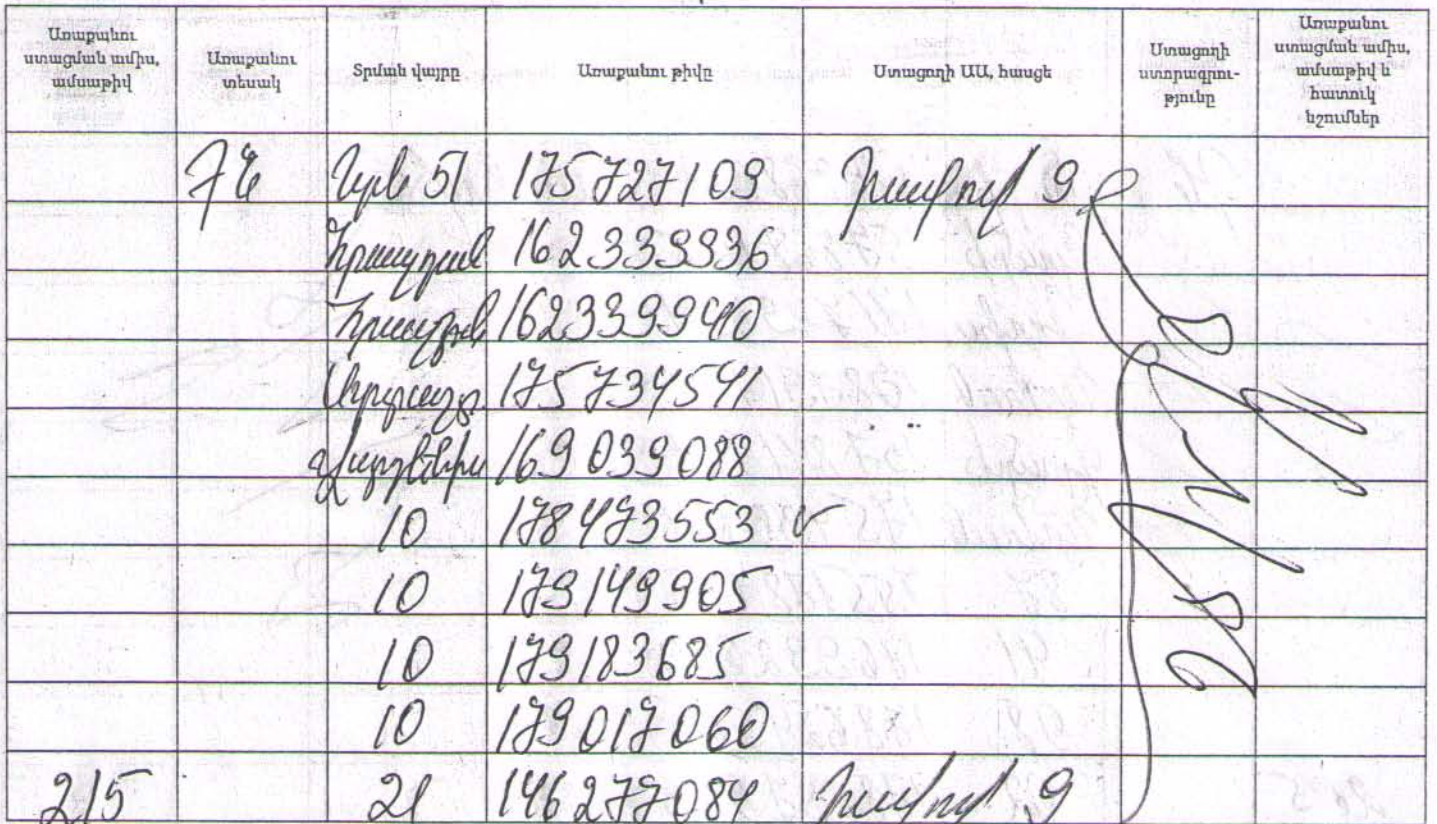 Առաքանու ստացման ամիս, ամսաթիվ
Առաքանու տեսակ
Տրման վայրը
Առաքանու թիվը
Ստացողի ԱԱ, հասցե
Ստացողի ստորագրու-թյունը
Առաքանու ստացման ամիս, ամսաթիվ և հատուկ նշումներ
Երև 51 175727109 9
Հրազդան 162339936
Հրազդան 162339940
175734541
Վարդենիս 169039088
10 178473553 v
10 179149905
10 179183685
10 179017060
2/5 21 146277084 9